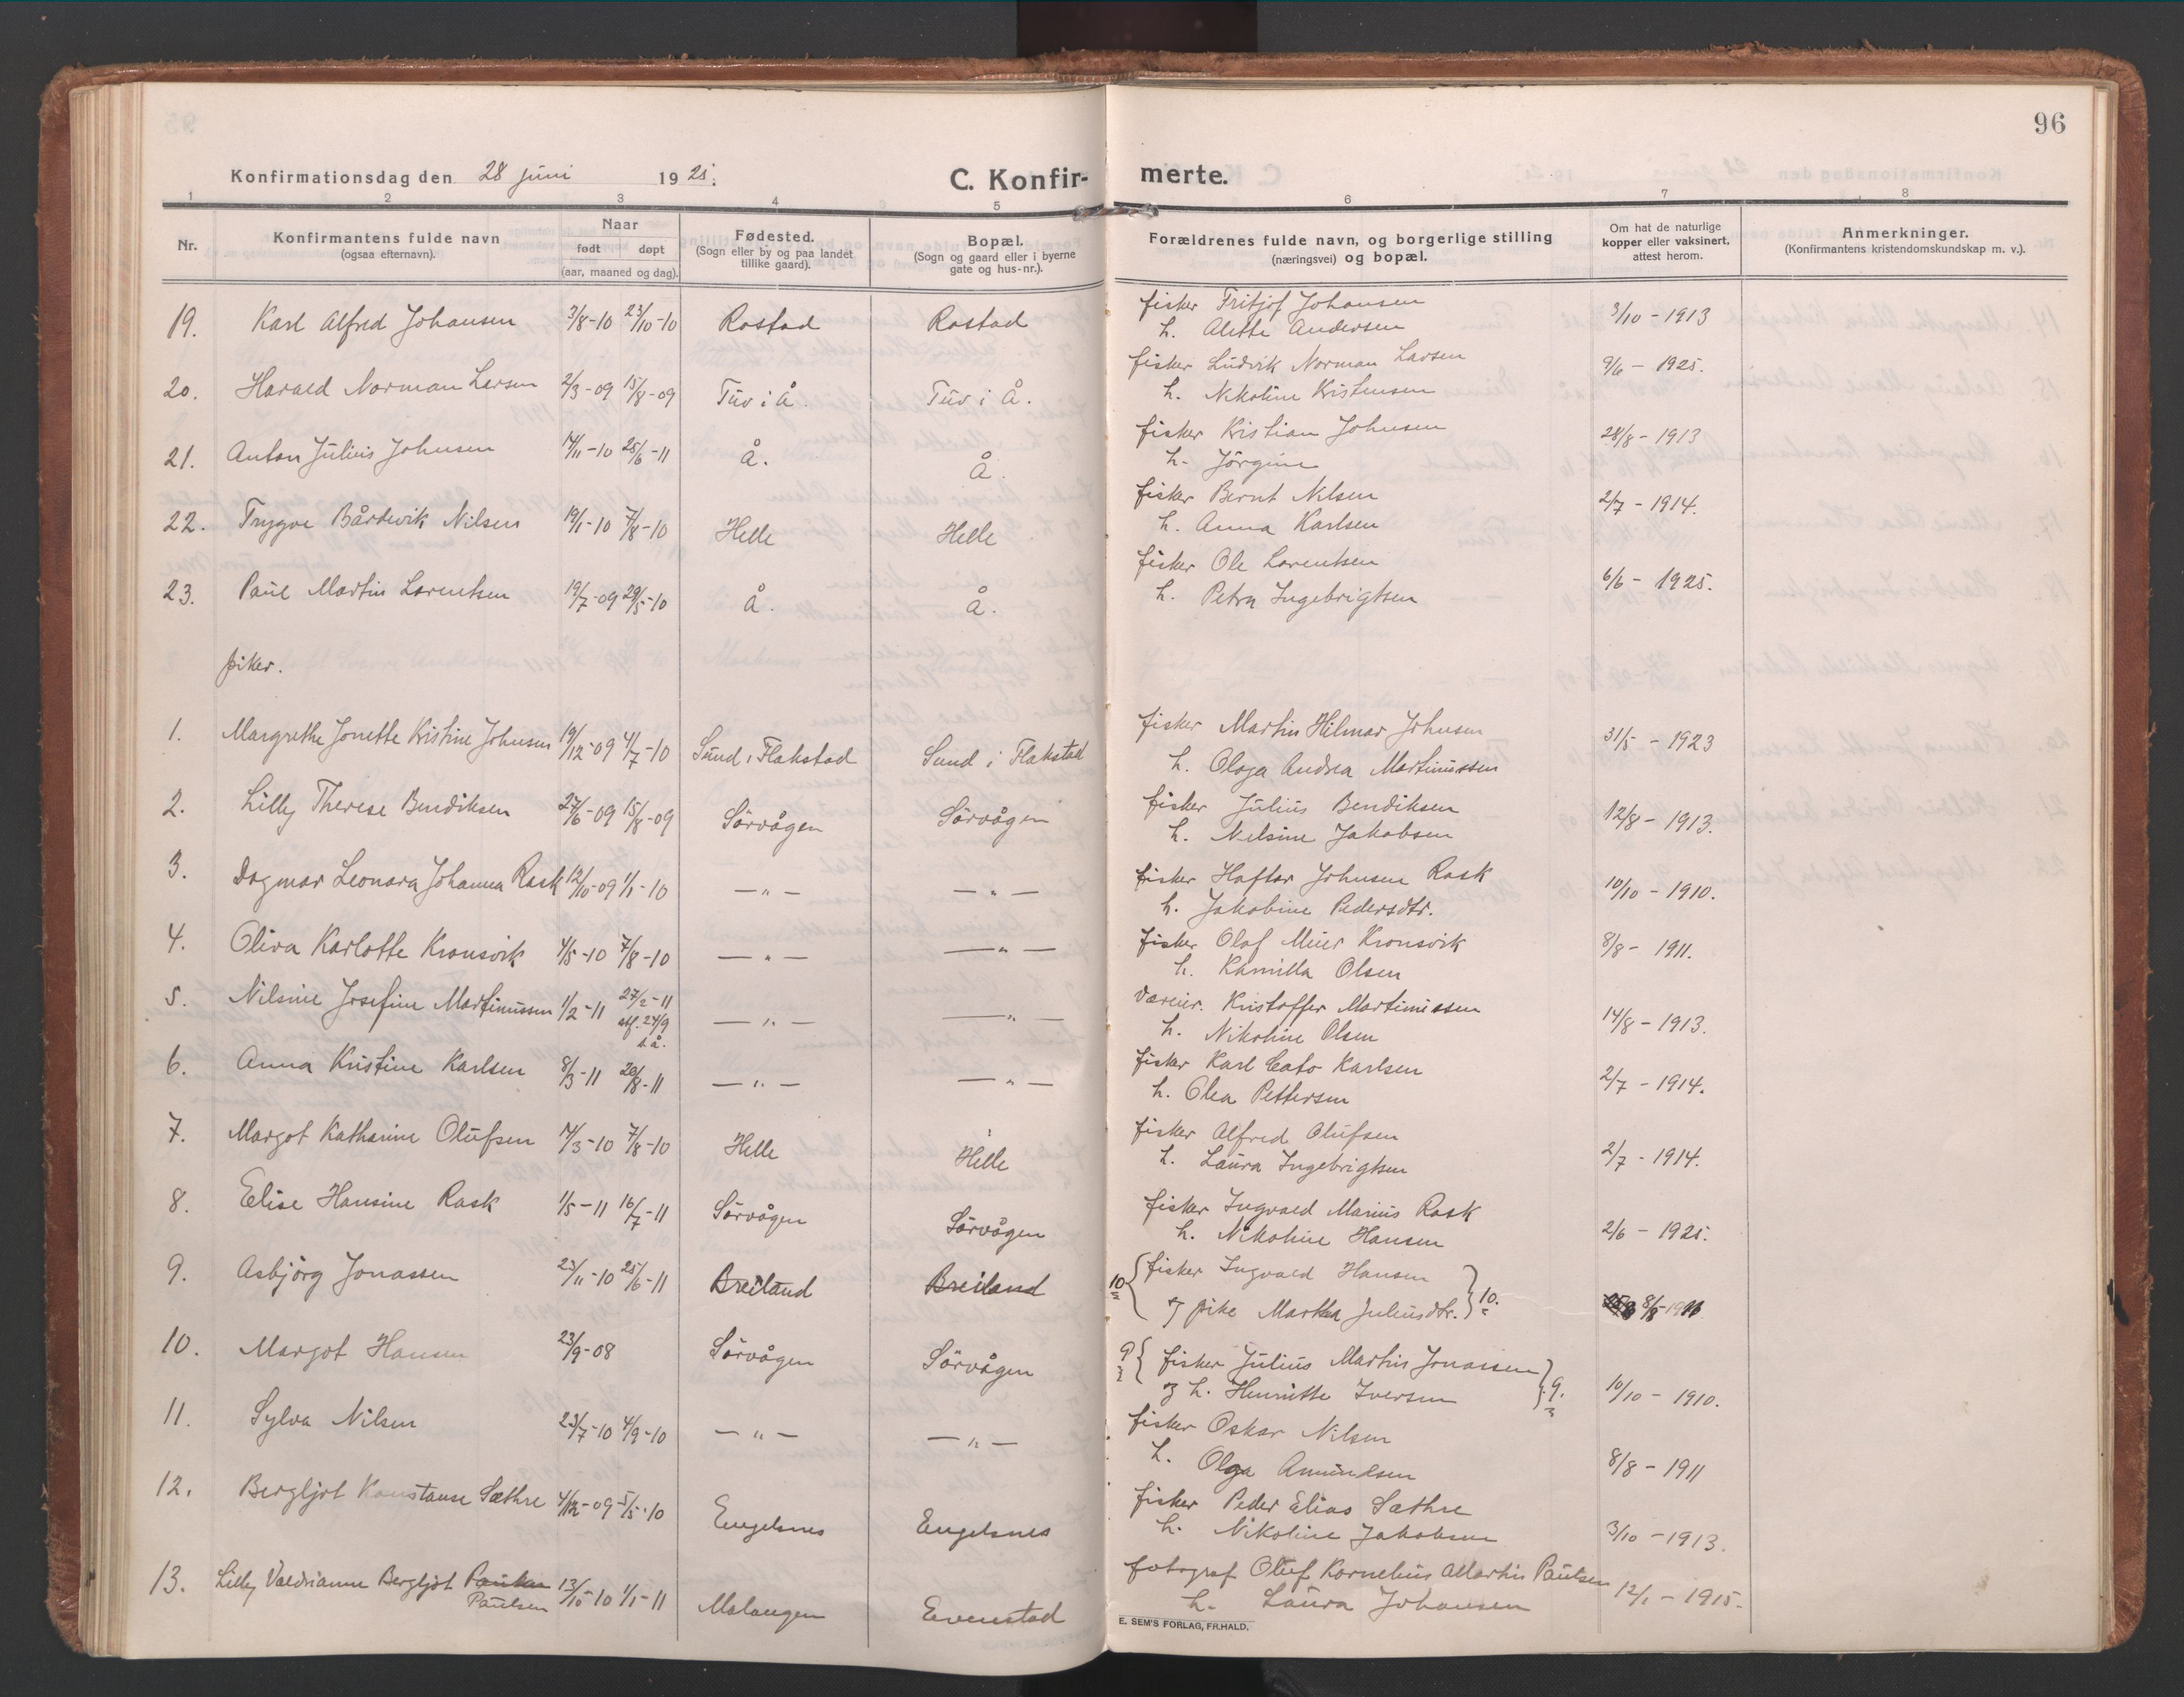 96
Konfirmationsdag den 28 juni 1925.
C. Konfirmerte.
1 2 3 4 5 6 7 8
Nr.
Konfirmantens fulde navn
(ogsaa efternavn).
Naar
født døpt
(aar, maaned og dag).
Fødested.
(Sogn eller by og paa landet
tillike gaard).
Bopæl.
(Sogn og gaard eller i byerne
gate og hus-nr.).
Forældrenes fulde navn, og borgerlige stilling
(næringsvei) og bopæl.
Om hat de naturlige
kopper eller vaksinert,
attest herom.
Anmerkninger.
(Konfirmantens kristendomskundskap m. v.).
19. Karl Alfred Johansen 3/8-10 23/10-10 Rostad Rostad fisker Fritjof Johansen 3/10-1913
h. Alette Andersen
20. Harald Norman Larsen 2/3-09 15/8-09 Tuv i Å. Tuv i Å. fisker Ludvik Norman Larsen 9/6-1925.
h. Nikoline Kristensen
21. Anton Julius Johnsen 14/11-10 25/6-11 Å. Å. fisker Kristian Johnsen 28/8-1913
h. Jörgine
22. Trygve Bårdevik Nilsen 19/1-10 7/8-10 Helle Helle fisker Bernt Nilsen 2/7-1914.
h. Anna Karlsen
23. Paul Martin Lorentsen 19/7-09 29/5-10 Å. Å. fisker Ole Lorentsen 6/6-1925.
h. Petra Ingebrigtsen
piker.
1. Margrethe Jonette Kristine Johnsen 19/12-09 4/7-10 Sund i Flakstad Sund i Flakstad fisker Martin Hilmar Johnsen 31/5-1923
h. Ologa Andrea Martinussen
2. Lilly Therese Bendiksen 27/6-09 15/8-09 Sörvågen Sörvågen fisker Julius Bendiksen 12/8-1913.
h. Nilsine Jakobsen
3. Dagmar Leonora Johanna Rask 12/10-09 1/1-10 —"— —"— fisker Haftor Johnsen Rask 10/10-1910.
h. Jakobine Pedersdtr.
4. Oliva Karlotte Kronsvik 4/5-10 7/8-10 —"— —"— fisker Olaf Meier Kronsvik 8/8-1911.
h. Kamilla Olsen
5. Nilsine Josefine Martinussen 1/2-11 27/2-11 —"— —"— Væreier. Kristoffer Martinussen 14/8-1913.
stf. 24/9 h. Nikoline Olsen
s.å.
6. Anna Kristine Karlsen 8/3-11 20/8-11 —"— —"— fisker Karl Cato Karlsen 2/7-1914.
h. Olea Pettersen
7. Margot Katharine Olufsen 14/3-10 7/8-10 Helle Helle fisker Alfred Olufsen 2/7-1914.
h. Laura Ingebrigtsen
8. Elise Hansine Rask 1/5-11 16/7-11 Sörvågen Sörvågen fisker Ingvald Marius Rask 2/6-1925.
h. Nikoline Hansen
9. Asbjörg Jonassen 23/11-10 25/6-11 Breiland Breiland 10 { fisker Ingvald Hansen } 10. 8/8-1911
og pike Martha Juliusdtr.
10. Margot Hansen 23/9-08 Sörvågen Sörvågen 9 { fisker Julius Martin Jonassen } 9. 10/10-1910.
og h. Henriette Iversen
11. Sylva Nilsen 23/7-10 4/9-10 —"— —"— fisker Oskar Nilsen 8/8-1911
h. Olga Amundsen
12. Bergljot Konstanse Sæthre 4/12-09 5/5-10 Engelsnes Engelsnes fisker Peder Elias Sæthre 3/10-1913.
h. Nikoline Jakobsen
13. Lilly Valdrianne Bergljot 13/10-10 1/1-11 Malangen Evenstad fotograf Oluf Kornelius Martin Paulsen 12/1-1915.
Paulsen h. Laura Johansen
E. SEM'S FORLAG, FR.HALD.